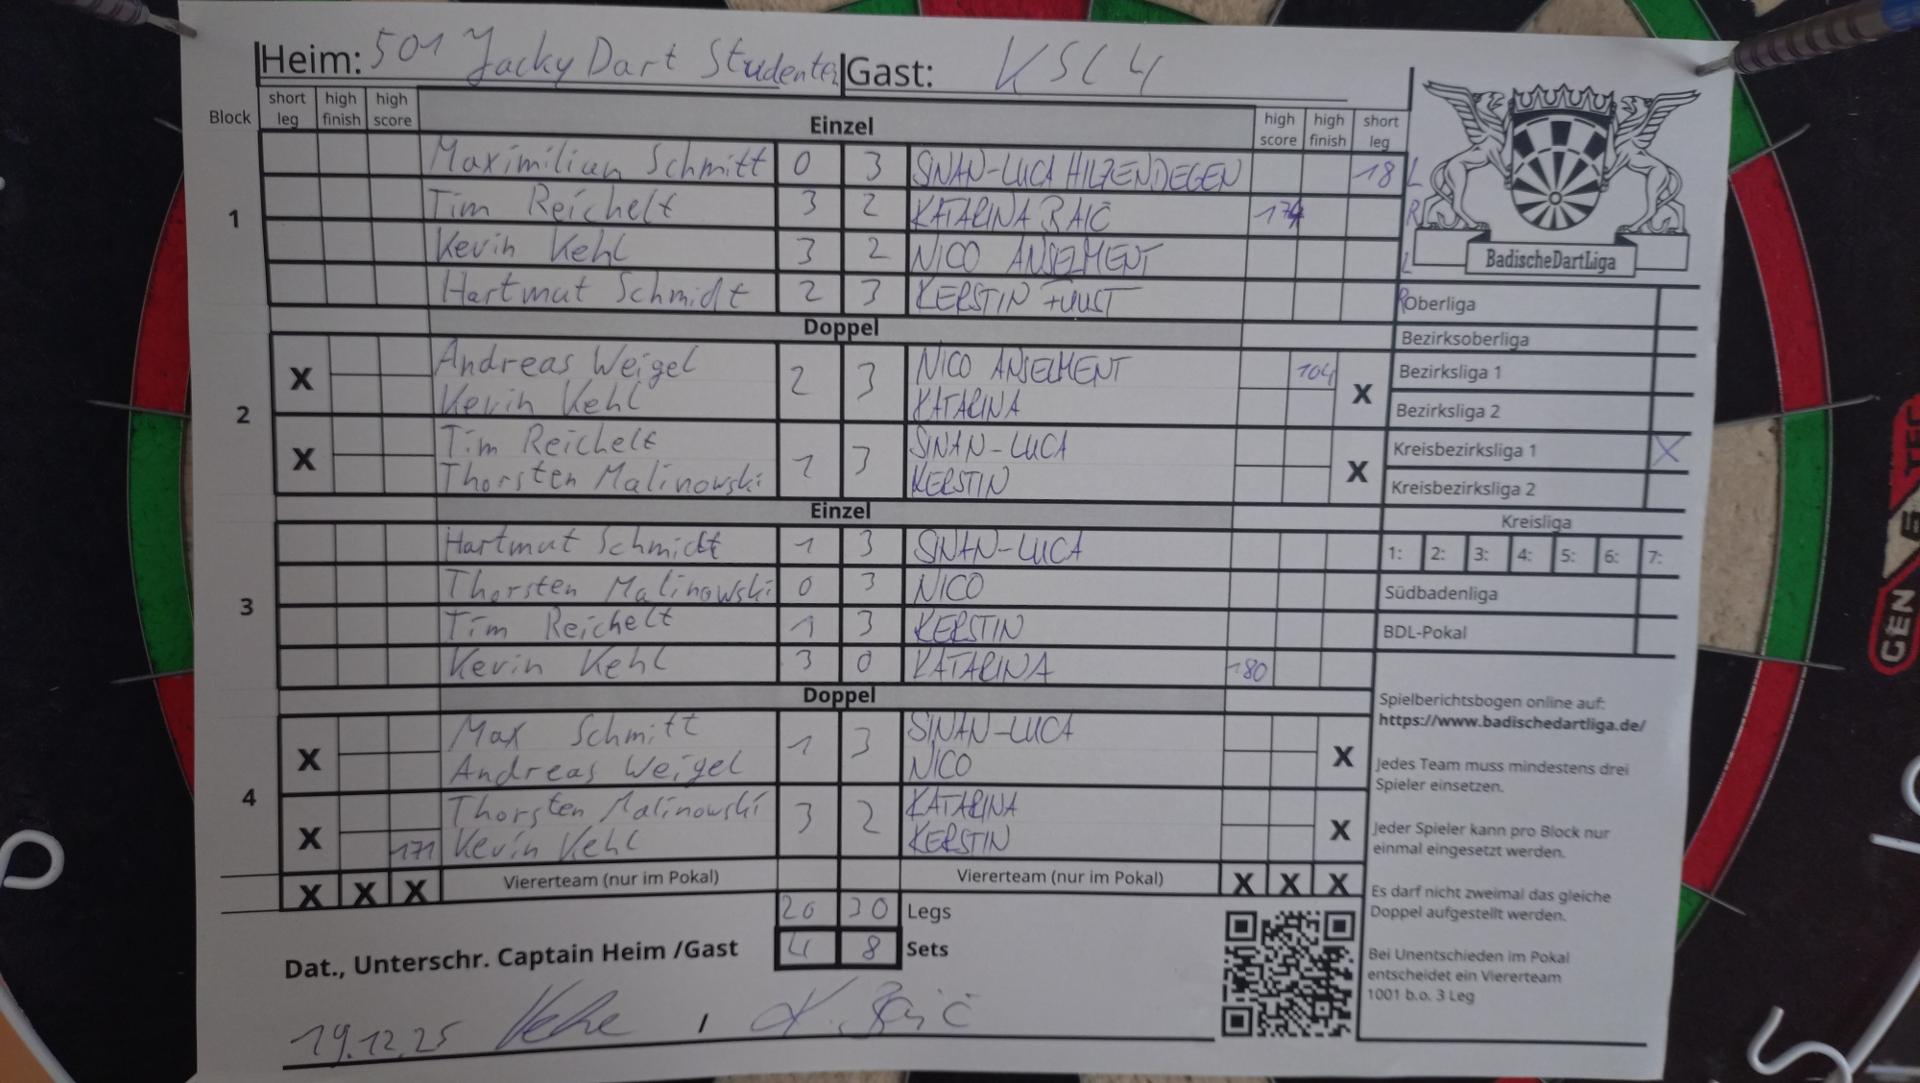 Heim: 501 Jacky Dart Studenten Gast: KSC 4
Block short leg high finish high score Einzel high score high finish short leg
Maximilian Schmitt 0 3 SINAN-LUCA HILZENDEGEN 18 L
1 Tim Reichelt 3 2 KATARINA RAIČ 174 R
Kevin Kehl 3 2 NICO ANSELMENT L
Hartmut Schmidt 2 3 KERSTIN FUUST R
BadischeDartLiga
Oberliga
Doppel
Bezirksoberliga
2
X Andreas Weigel 2 3 NICO ANSELMENT 104 X
Kevin Kehl KATARINA
Bezirksliga 1
Bezirksliga 2
X Tim Reichelt 1 3 SINAN-LUCA X
Thorsten Malinowski KERSTIN
Kreisbezirksliga 1 X
Kreisbezirksliga 2
Einzel
Kreisliga
1: 2: 3: 4: 5: 6: 7:
Hartmut Schmidt 1 3 SINAN-LUCA
3 Thorsten Malinowski 0 3 NICO
Südbadenliga
Tim Reichelt 1 3 KERSTIN
BDL-Pokal
Kevin Kehl 3 0 KATARINA 180
Doppel
4
X Max Schmitt 1 3 SINAN-LUCA X
Andreas Weigel NICO
X Thorsten Malinowski 3 2 KATARINA X
171 Kevin Kehl KERSTIN
X X X Viererteam (nur im Pokal) Viererteam (nur im Pokal) X X X
20 30 Legs
4 8 Sets
Dat., Unterschr. Captain Heim /Gast
19.12.25 Kehl / K. Raič
Spielberichtsbogen online auf:
https://www.badischedartliga.de/
Jedes Team muss mindestens drei
Spieler einsetzen.
Jeder Spieler kann pro Block nur
einmal eingesetzt werden.
Es darf nicht zweimal das gleiche
Doppel aufgestellt werden.
Bei Unentschieden im Pokal
entscheidet ein Viererteam
1001 b.o. 3 Leg